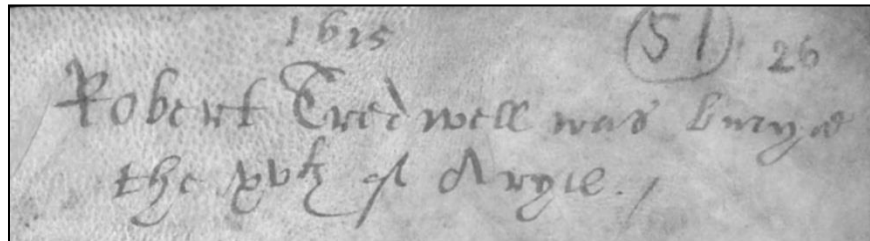 1615 (51) 26
Robert Tredwell was buryed
the xvth of Aryll.